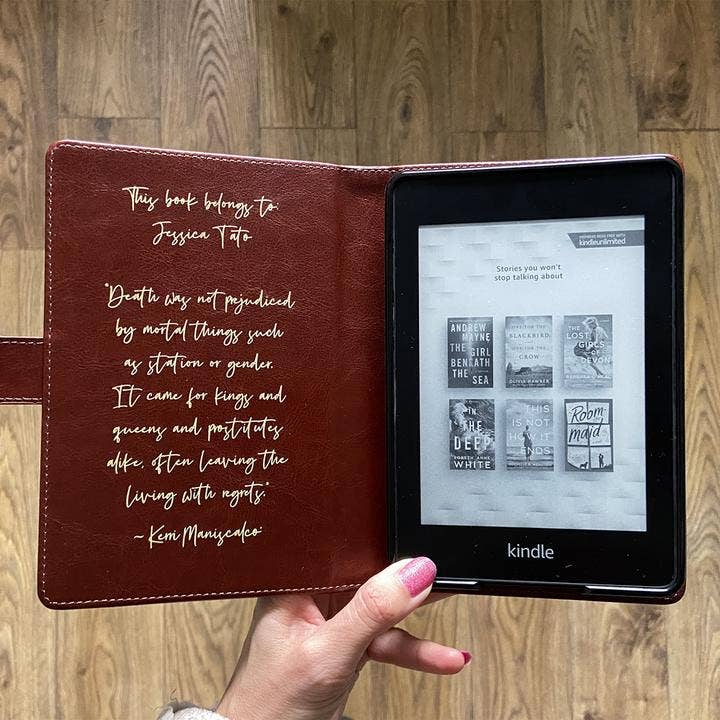 This book belongs to:
Jessica Tato
"Death was not prejudiced
by mortal things such
as station or gender.
It came for kings and
queens and prostitutes
alike, often leaving the
living with regrets."
~Kerri Maniscalco
kindleunlimited
Stories you won't
stop talking about
ANDREW
MAYNE
THE GIRL
BENEATH
THE
SEA
BLACKBIRD
CROW
OLIVIA HAWKER
THE
LOST
GIRLS
OF
DEVON
IN
THE
DEEP
LORETH ANNE
WHITE
THIS
IS NOT
HOW IT
ENDS
Room
maid
kindle